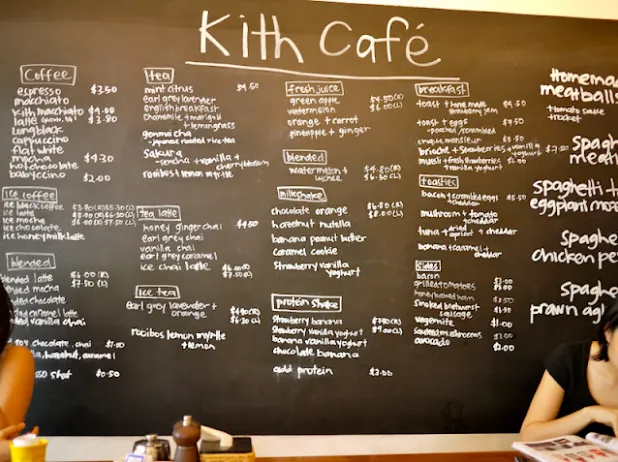 Kith Café
Coffee
espresso $3.50
macchiato
kith macchiato $4.00
latte $3.80
longblack
cappuccino
flat white
mocha $4.30
hot chocolate
babyccino $2.00
Ice coffee
ice black coffee
ice latte
ice mocha
ice chocolate
ice honey milk latte
blended
blended latte $6.00(R)
blended mocha $7.50(L)
blended chocolate
blended caramel latte
blended vanilla chai
soy, chocolate, chai
hazelnut, caramel
espresso shot $0.50
tea
mint citrus $4.50
earl grey lavender
english breakfast
chamomile + marigold
+ lemongrass
genmai cha
- japanese roasted rice tea
Sakura
- sencha + vanilla +
cherry blossom
rooibos lemon myrtle
tea latte
honey ginger chai $4.50
earl grey chai
vanilla chai
earl grey caramel
ice chai latte $6.00(R)
$7.50(L)
Ice tea
earl grey lavender +
orange $6.30(L)
rooibos lemon myrtle
+ lemon
fresh juice
green apple $4.50(R)
watermelon $6.00(L)
orange + carrot
pineapple + ginger
blended
watermelon + $4.80(R)
lychee $6.30(L)
milkshake
chocolate orange $6.50(R)
hazelnut nutella $8.00(L)
banana peanut butter
caramel cookie
Strawberry vanilla
yoghurt
protein shake
Strawberry banana
Strawberry vanilla yoghurt
banana vanilla yoghurt
chocolate banana
add protein $2.00
breakfast
toast + home made $4.50
strawberry jam
toast + eggs $7.50
- poached/scrambled
croque monsieur
brioche + Strawberries + vanilla $7.50
yoghurt
muesli + fresh strawberries
+ vanilla yoghurt
toasties
bacon + scrambled eggs
+ cheddar
mushroom + tomato
+ cheddar
tuna + dried + cheddar
apricot
banana + caramel +
cheddar
sides
bacon
grilled tomatoes
honey baked ham
smoked bratwurst
sausage
vegemite
sauteed mushrooms
avocado $2.00
Homemad
meatballs
- tomato sauce
+ rocket
Spagh
meatb
spaghetti +
eggplant mozz
Spaghe
chicken pe
Spaghe
prawn agl